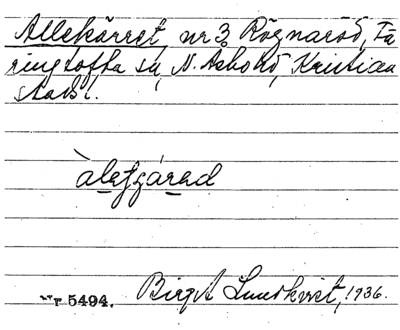 Allekärret, nr 3 Rögnaröd, Fä
ringtofta sn, N. Åsbo hd, Kristian
stads l.
àlefzárad
Nr 5494. Birgit Lundkvist, 1936.